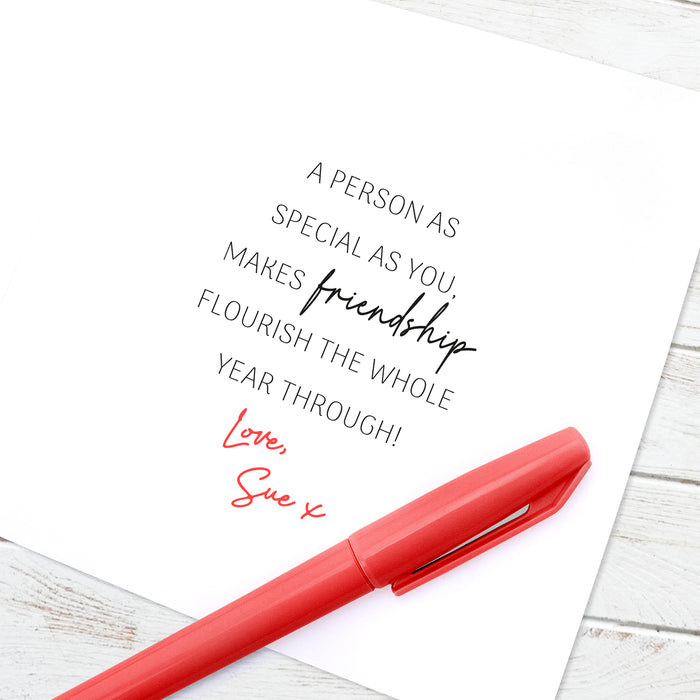 A PERSON AS
SPECIAL AS YOU,
MAKES friendship
FLOURISH THE WHOLE
YEAR THROUGH!
Love,
Sue x